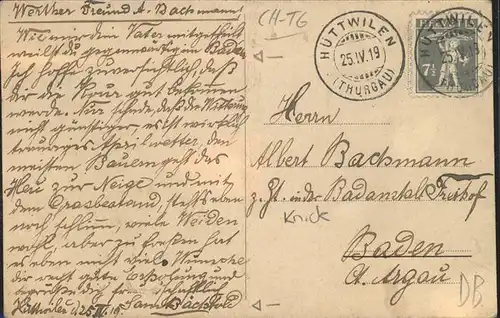 Werther Freund A. Bachmann!
Wie mir dein Vater mitgetheilt
weilst du gegenwärtig in Baden
Ich hoffe zuversichtlich, daß
dir die Kour gut bekommen
werde. Nur schade, daß die Witterung
nicht günstiger, es ist wirklich
trauriges Aprilwetter, den
meisten Bauern geht das
Heu zur Neige und mit
dem Grasbestand, steht's eben
noch schlimm, viele Weiden
wohl, aber zu fressen hat
es eben nicht viel. Wünsche
dir recht gute Erholung und
grüße dich freundschaftlich
Hüttwilen d. 25 IV. 19.
CH-TG
HÜTTWILEN
25.IV.19
(THURGAU)
HÜTTWILEN
25.IV.19
7½
Herrn
Albert Bachmann
z. Zt. in der Badanstalt Freihof
Knick
Baden
Ct. Argau
DB